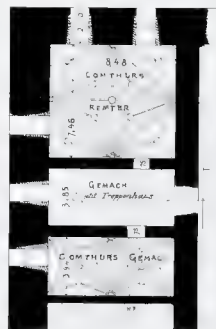 8.48
COMTHURS
REMTER
7,46
GEMACH
mit Treppenhaus
3.85
COMTHURS GEMAC